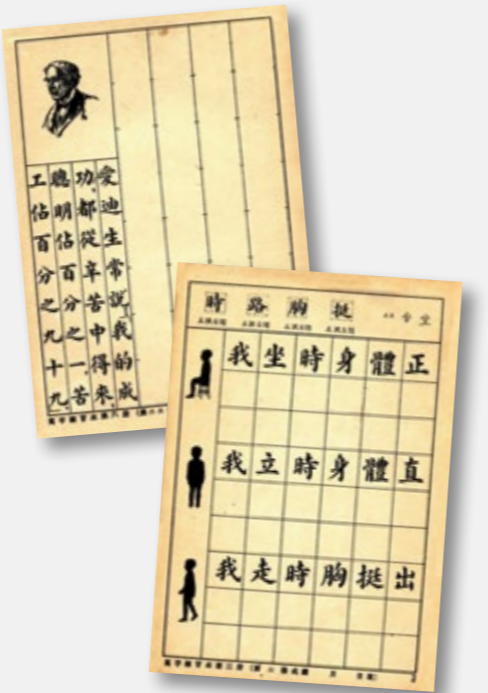 愛迪生常說,我的成
功,都從辛苦中得來,
聰明佔百分之一,苦
工佔百分之九十九,
時 路 胸 挺
我坐時身體正
我立時身體直
我走時胸挺出